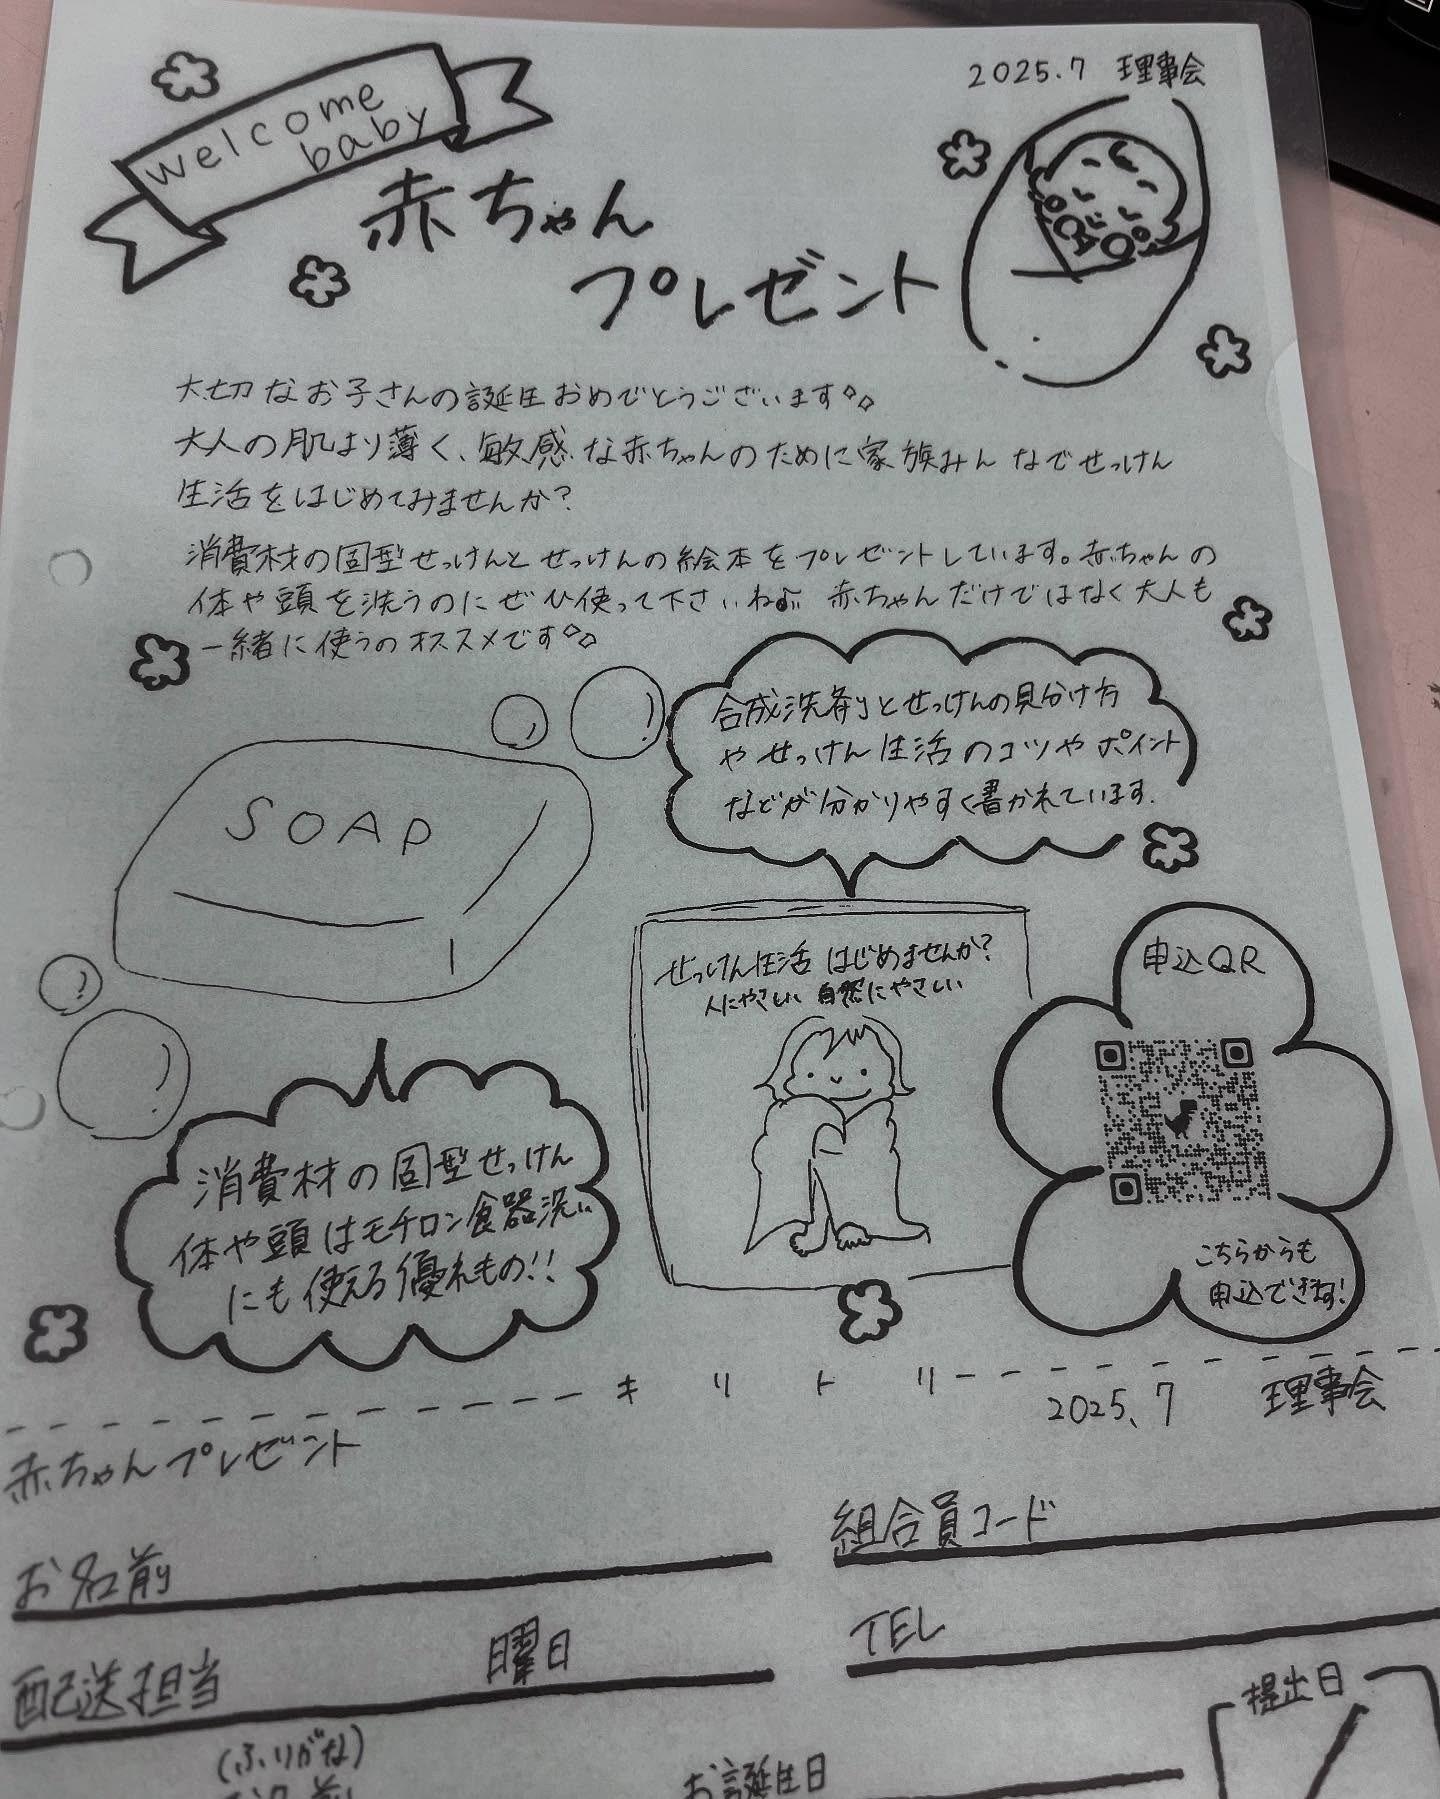 2025.7 理事会
welcome
baby
赤ちゃん
プレゼント
大切なお子さんの誕生おめでとうございます
大人の肌より薄く、敏感な赤ちゃんのために家族みんなでせっけん
生活をはじめてみませんか?
消費材の固型せっけんとせっけんの絵本をプレゼントしています。赤ちゃんの
体や頭を洗うのにぜひ使って下さいね♫ 赤ちゃんだけではなく大人も
一緒に使うのオススメです
合成洗剤とせっけんの見分け方
やせっけん生活のコツやポイント
などが分かりやすく書かれています.
SOAP
せっけん生活はじめませんか?
人にやさしい 自然にやさしい
申込QR
こちらからも
申込できます!
消費材の固型せっけん
体や頭はモチロン食器洗い
にも使える優れもの!!
キリトリ
2025.7 理事会
赤ちゃんプレゼント
お名前
組合員コード
配送担当 曜日
TEL
提出日
(ふりがな)
お誕生日